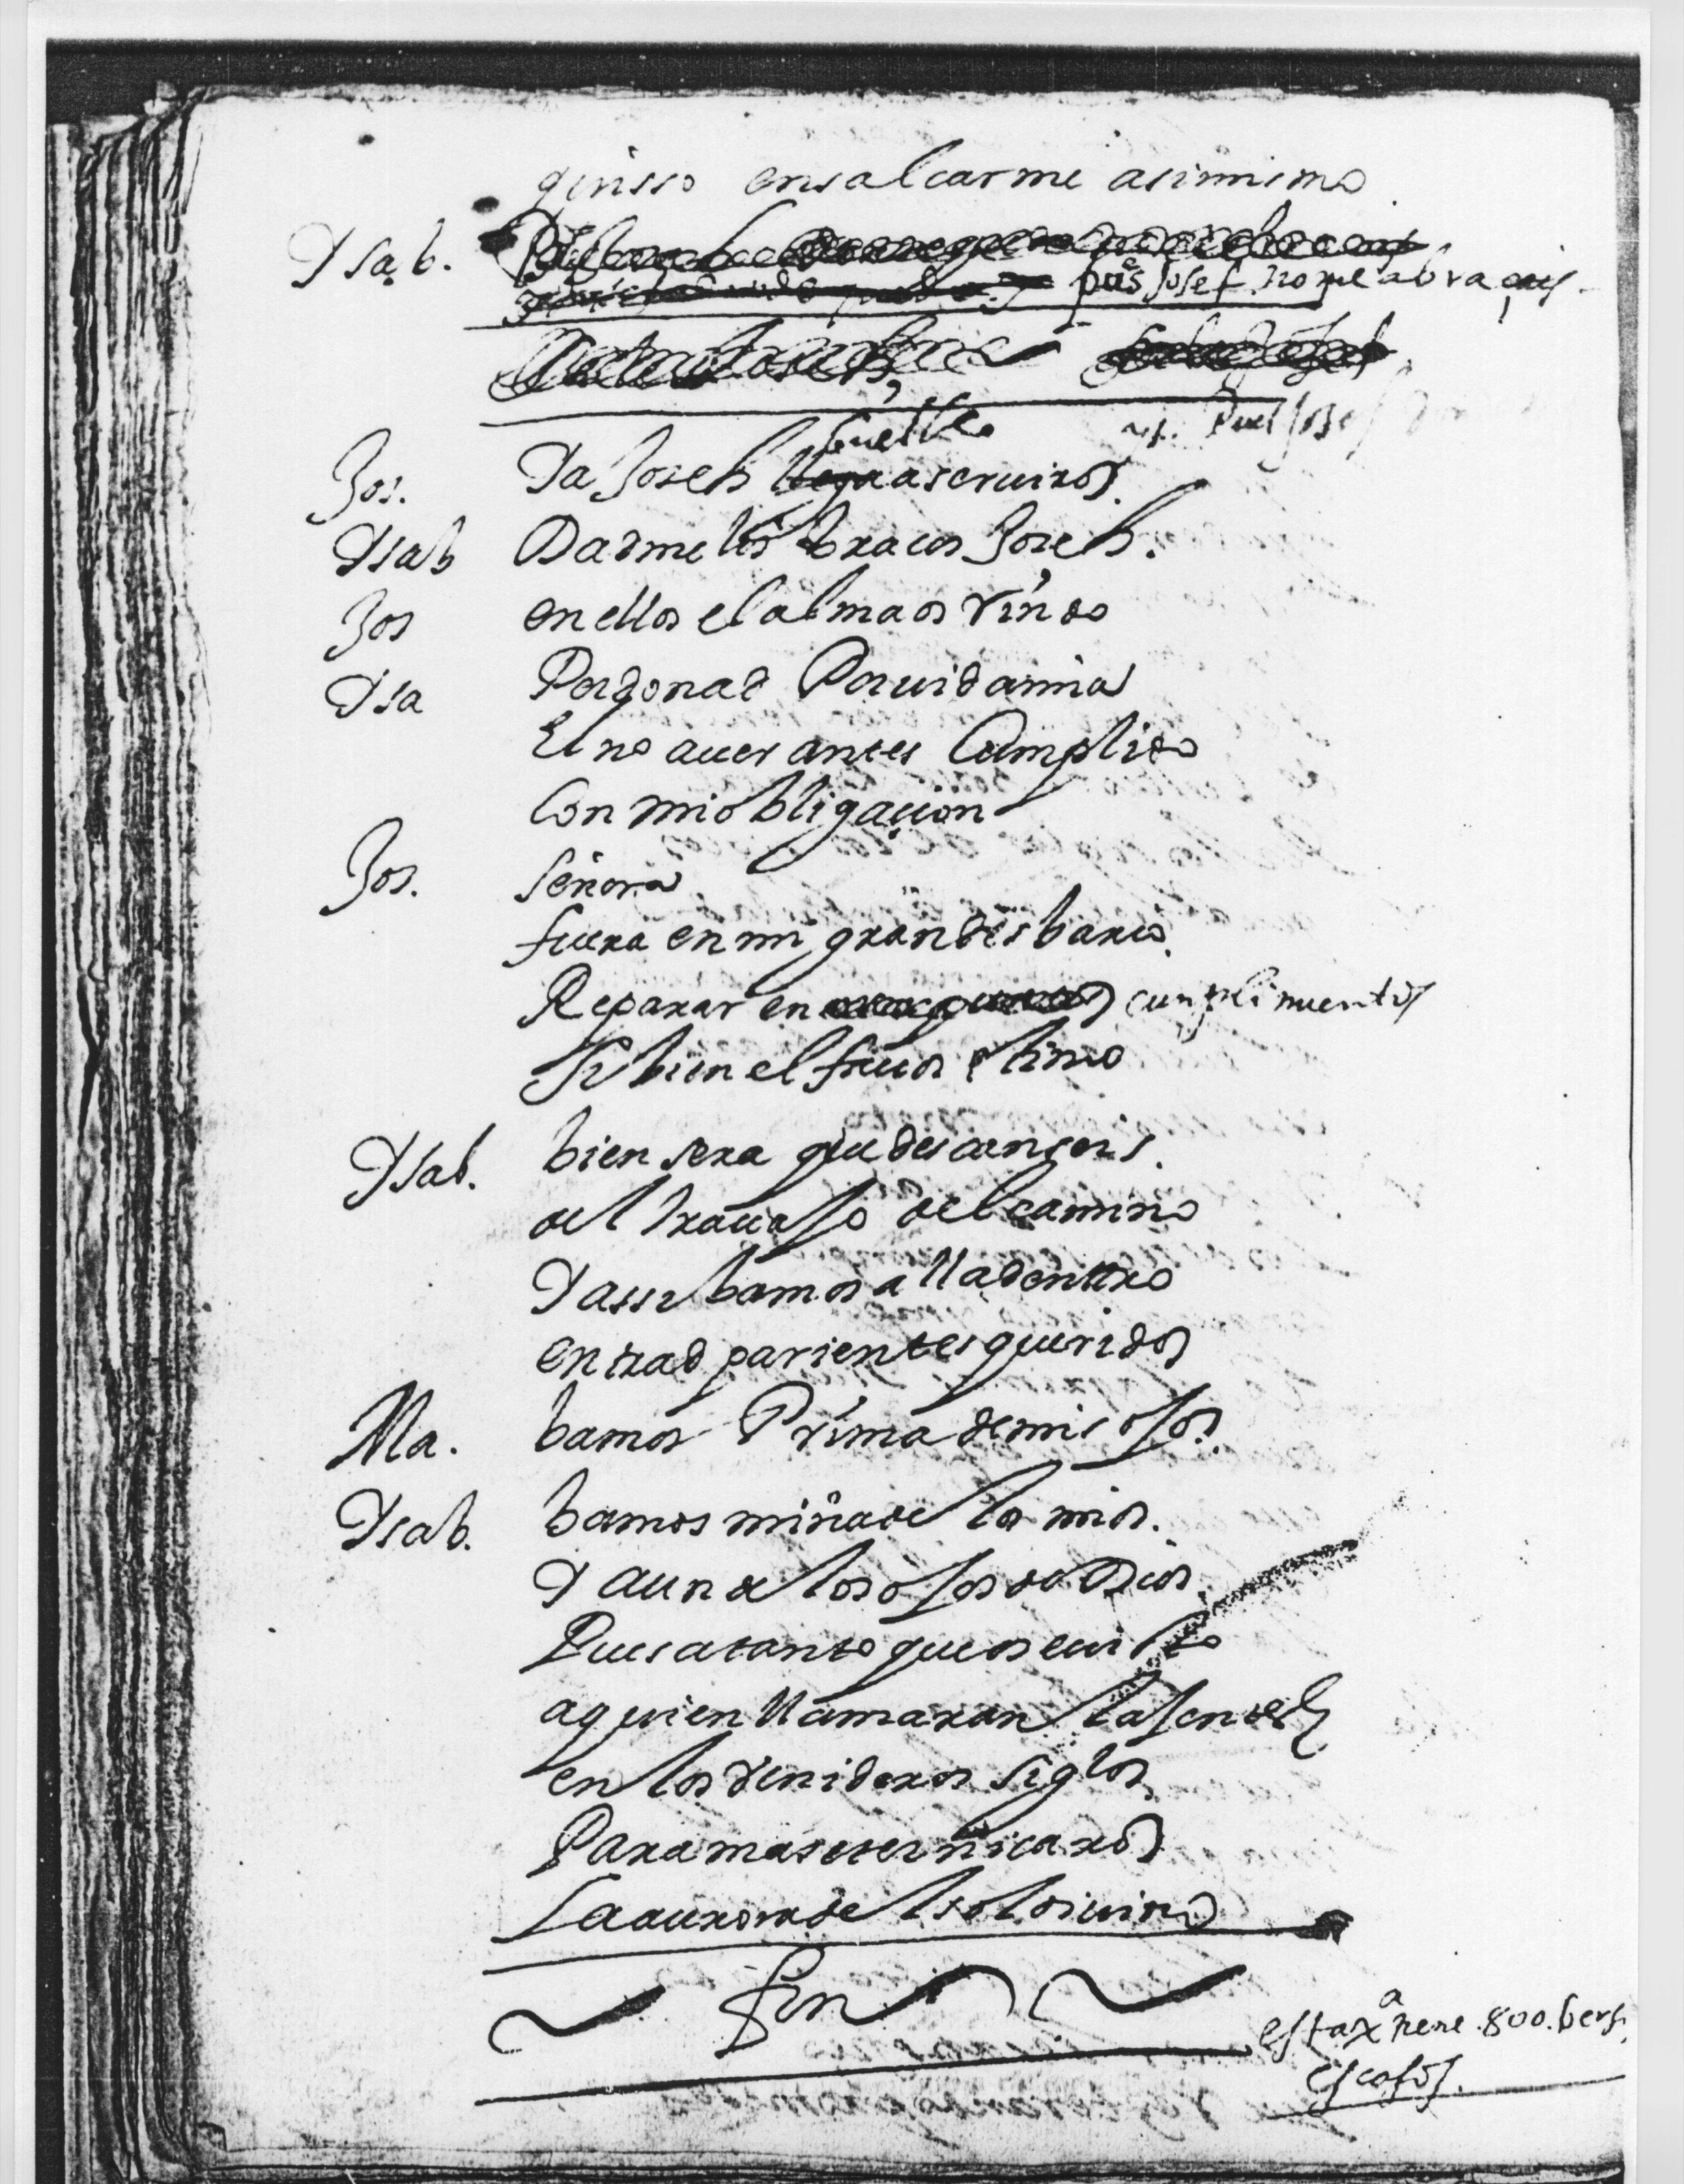 quisso ensalcarme asimismo
Ysab.
pues Josef no me abraçais.
buelbo
Jos. Ya Joseh llega a seruiros
Ysab Dadme los bracos Joseh.
Jos en ellos el alma os rindo
Ysa Perdonad Por uida mia
El no auer antes Cumplido
Con mi obligaçion
Jos. señora
fuera en mi gran desbario
Reparar en cunplimientos
Si bien el fauor estimo
Ysab. bien sera que descanseis.
del trauajo del camino
Y assi bamos alla dentro
entrad parientes queridos
Ma. bamos Prima de mis ojos.
Ysab. bamos niña de los mios.
Y aun de los ojos de Dios.
Pues a tanto que os euisto
a quien llamaran las gentes
en los Venideros siglos
Para mas eternicaros
La aurora del sol diuino
fin
esta xª tiene .800. bers.
escasos.